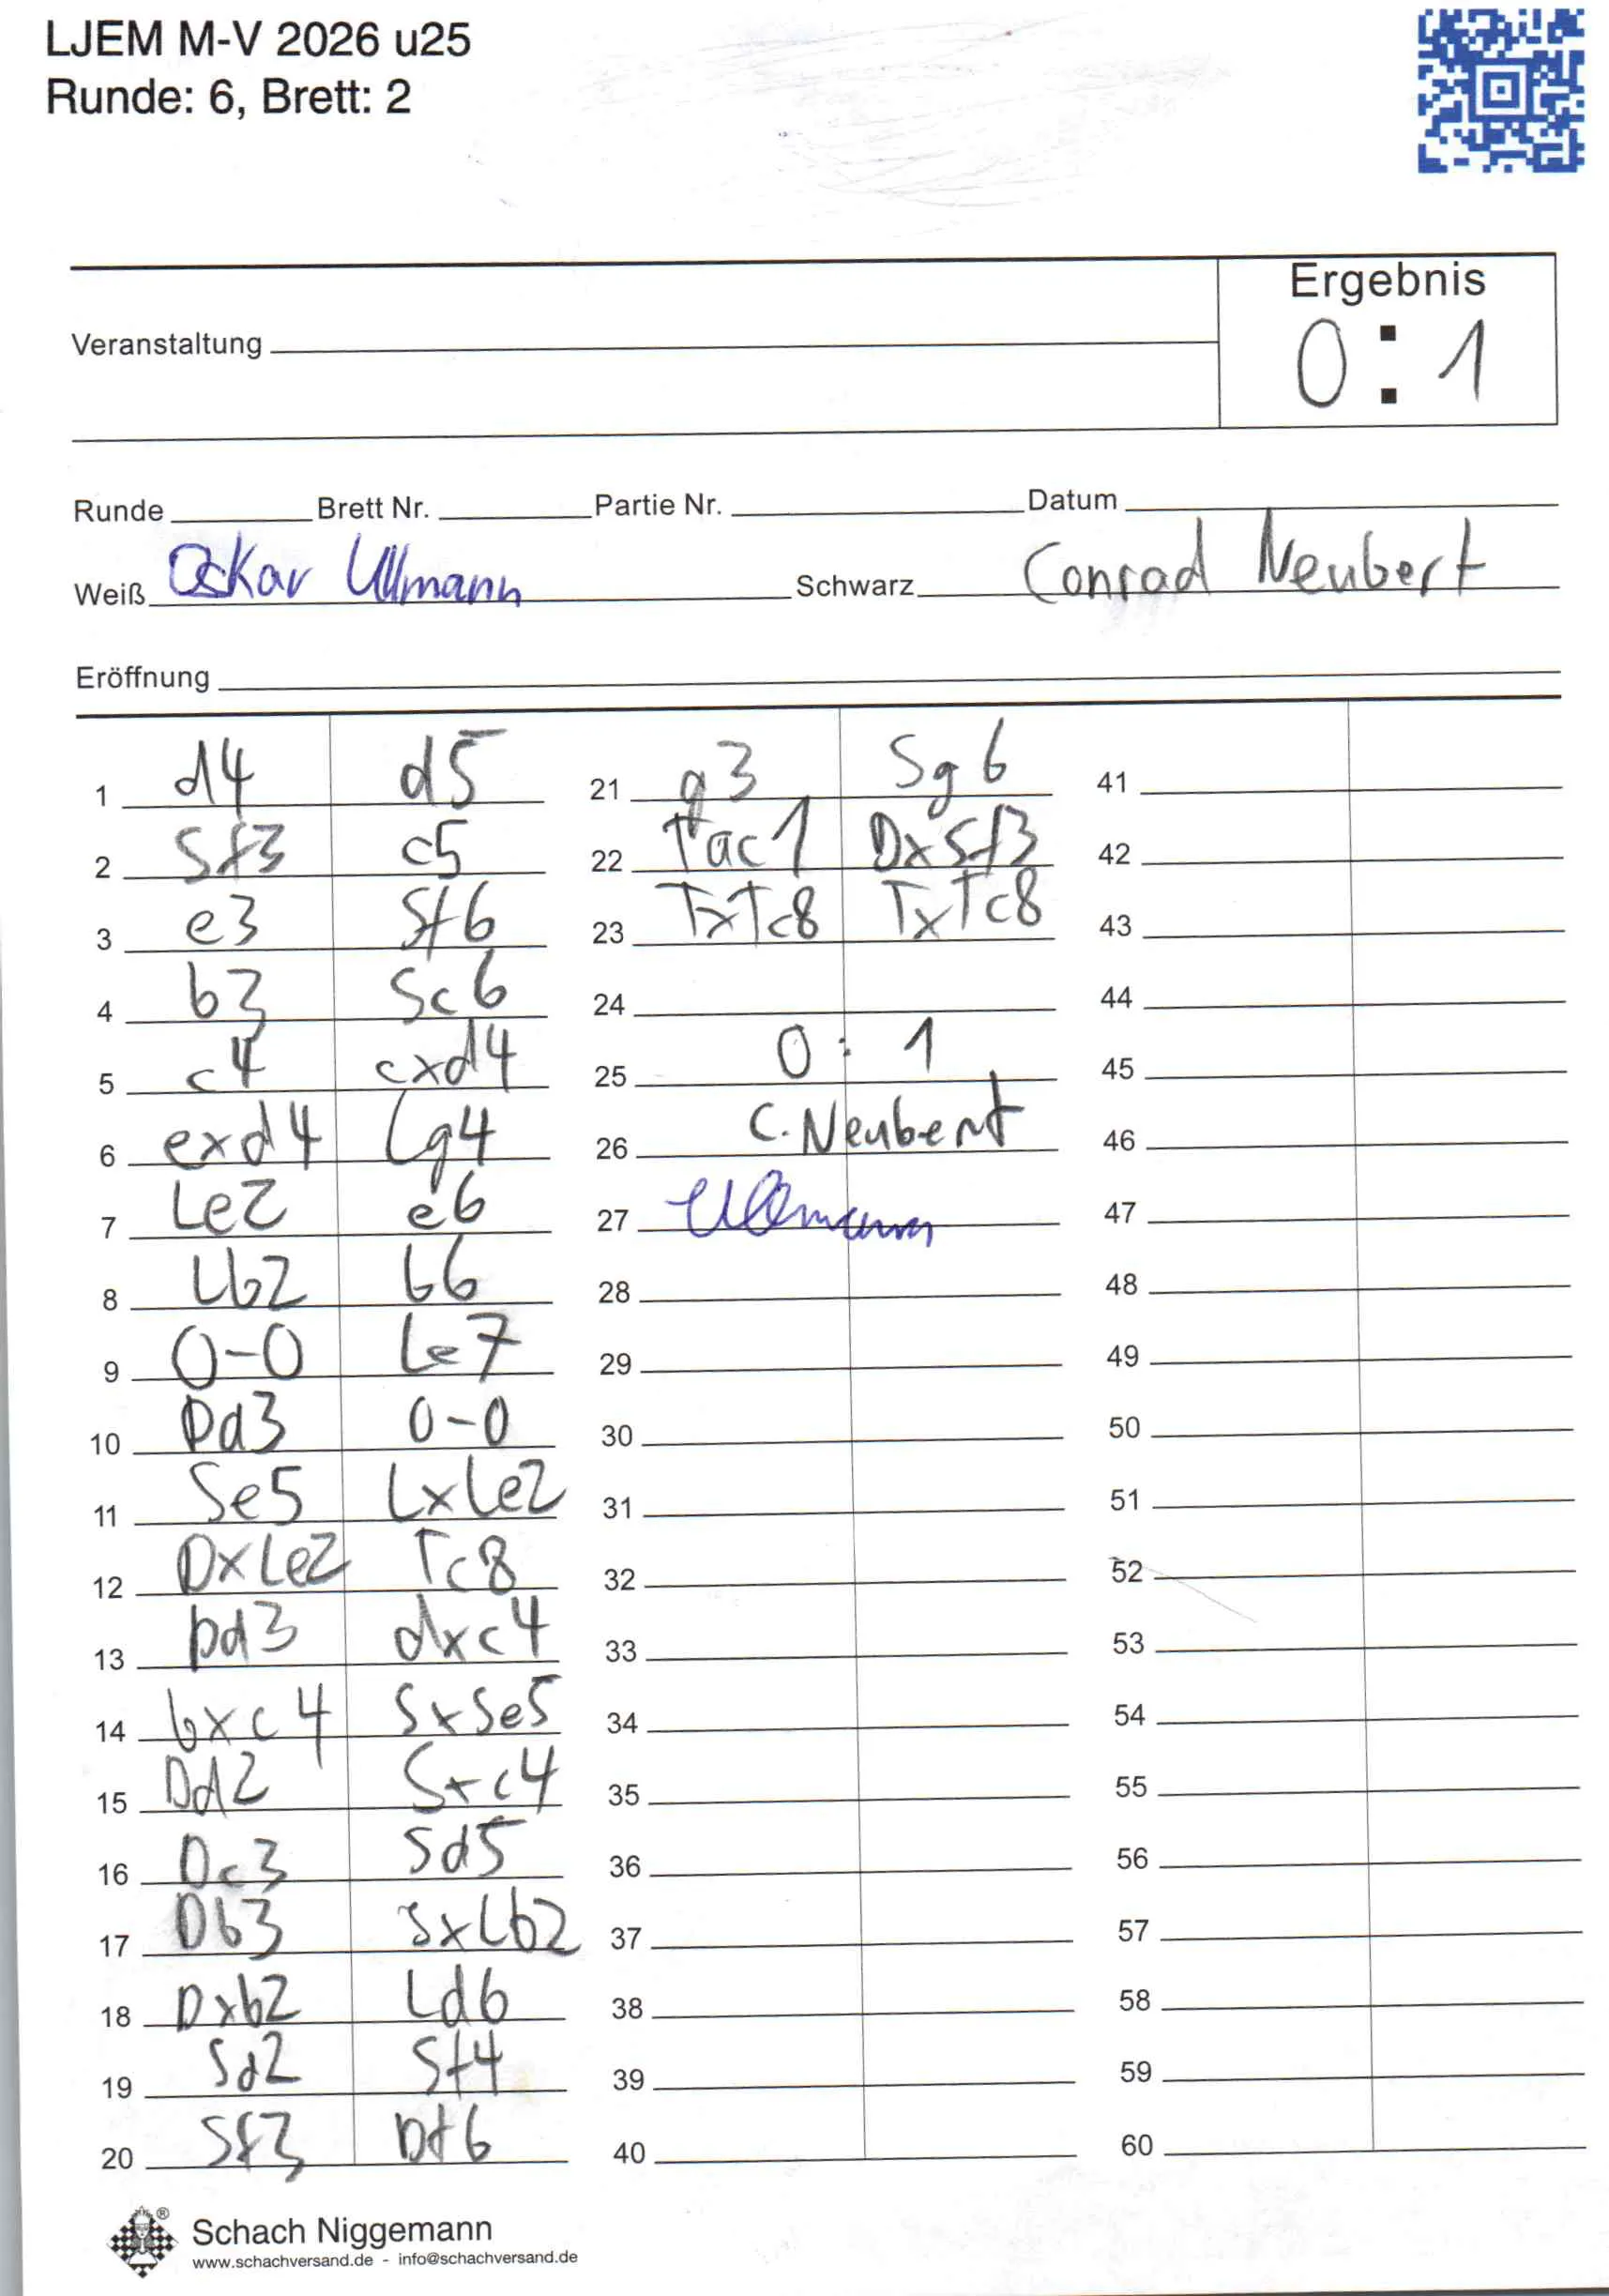 LJEM M-V 2026 u25
Runde: 6, Brett: 2
Ergebnis
Veranstaltung
0 : 1
Runde Brett Nr. Partie Nr. Datum
Weiß Oskar Ullmann Schwarz Conrad Neubert
Eröffnung
1 d4 d5
2 Sf3 c5
3 e3 Sf6
4 b3 Sc6
5 c4 cxd4
6 exd4 Lg4
7 Le2 e6
8 Lb2 b6
9 0-0 Le7
10 Dd3 0-0
11 Se5 LxLe2
12 DxLe2 Tc8
13 Dd3 dxc4
14 bxc4 SxSe5
15 Dd2 Sxc4
16 Dc3 Sd5
17 Db3 SxLb2
18 Dxb2 Ld6
19 Sd2 Sf4
20 Sf3 Df6
21 g3 Sg6
22 Tac1 DxSf3
23 TxTc8 TxTc8
24
25 0 : 1
26 C. Neubert
27 Ullmann
28
29
30
31
32
33
34
35
36
37
38
39
40
41
42
43
44
45
46
47
48
49
50
51
52
53
54
55
56
57
58
59
60
Schach Niggemann
www.schachversand.de - info@schachversand.de